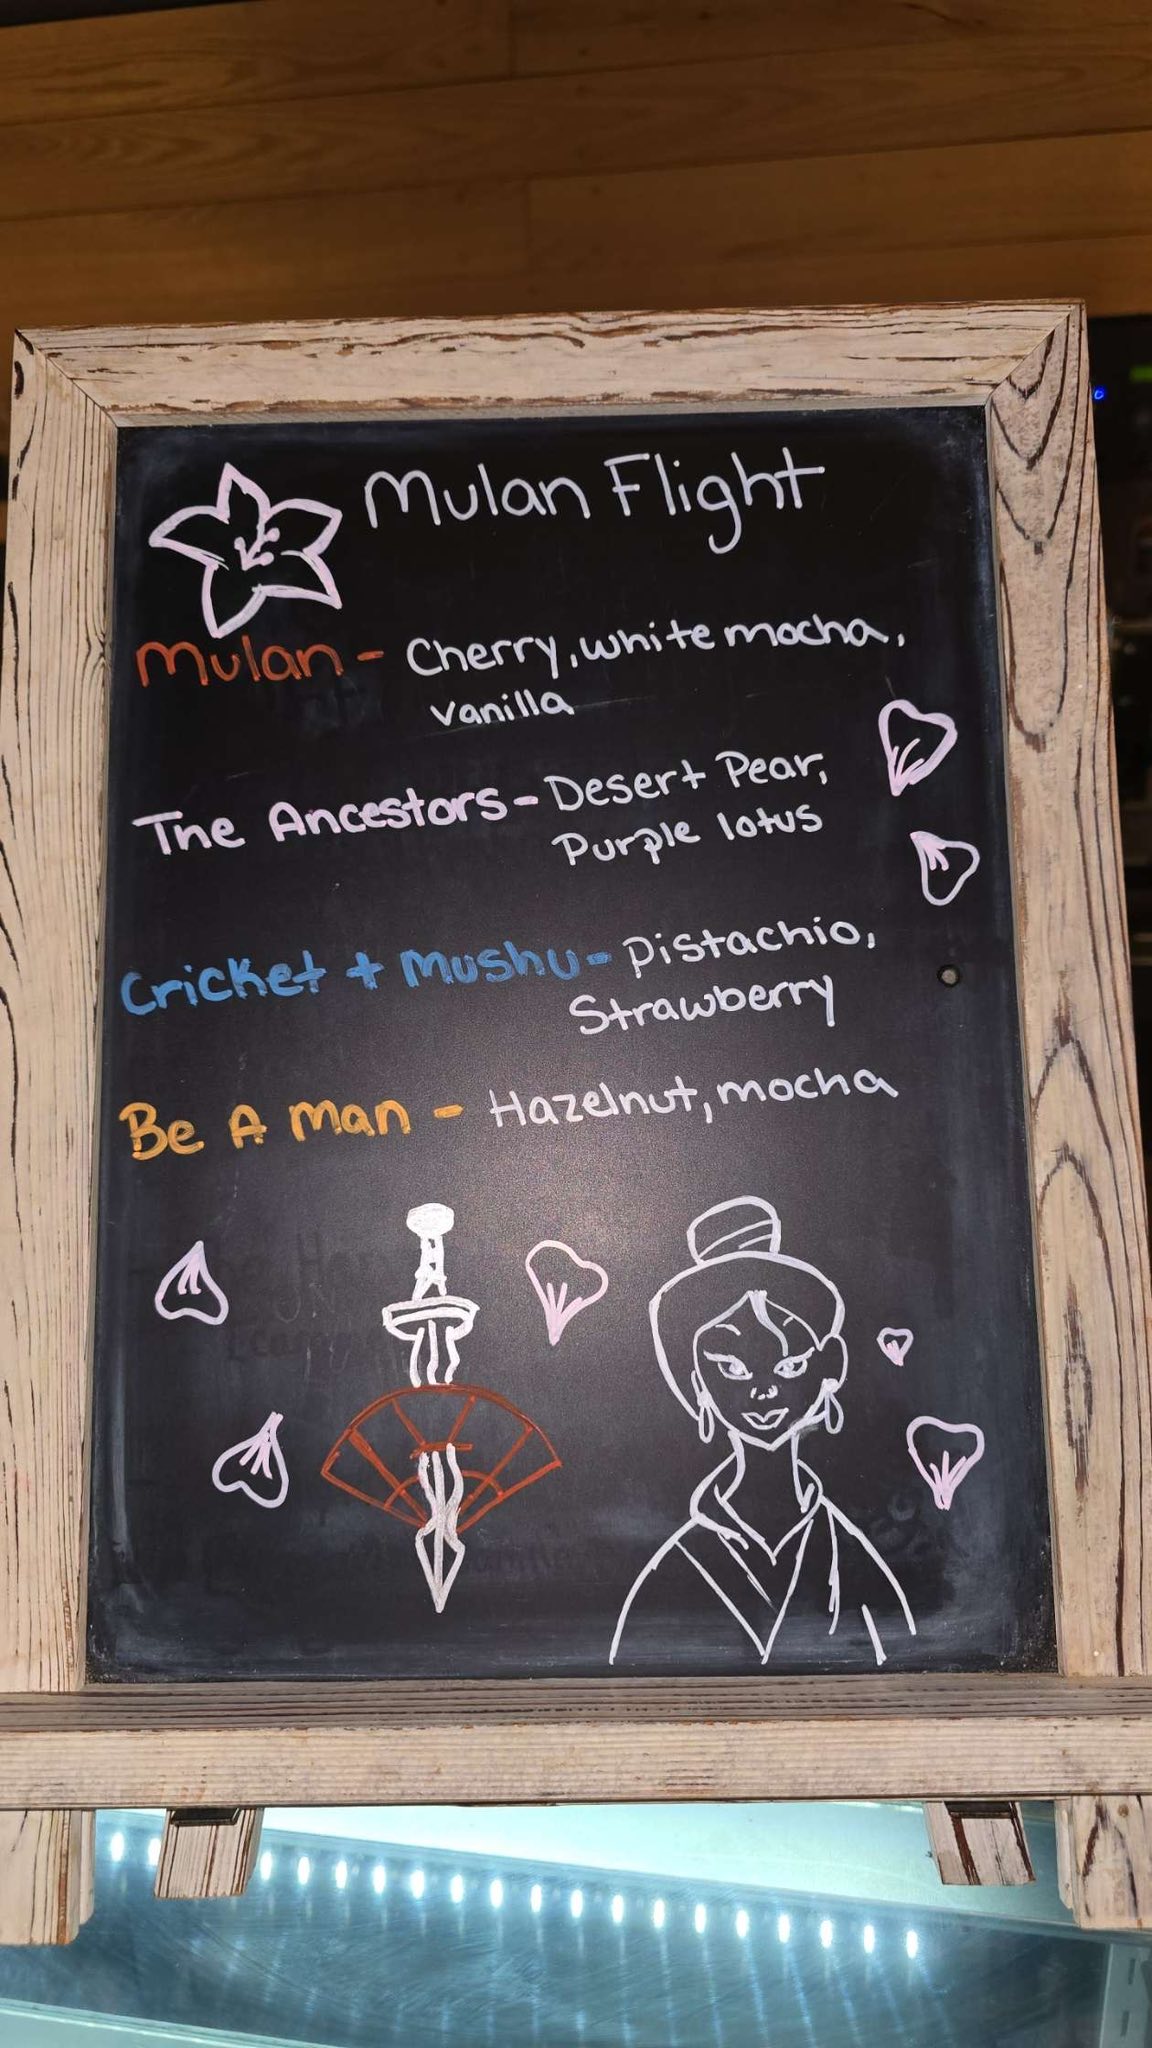 Mulan Flight
Mulan - Cherry, white mocha,
vanilla
The Ancestors - Desert Pear,
Purple lotus
Cricket + Mushu - Pistachio,
Strawberry
Be A Man - Hazelnut, mocha